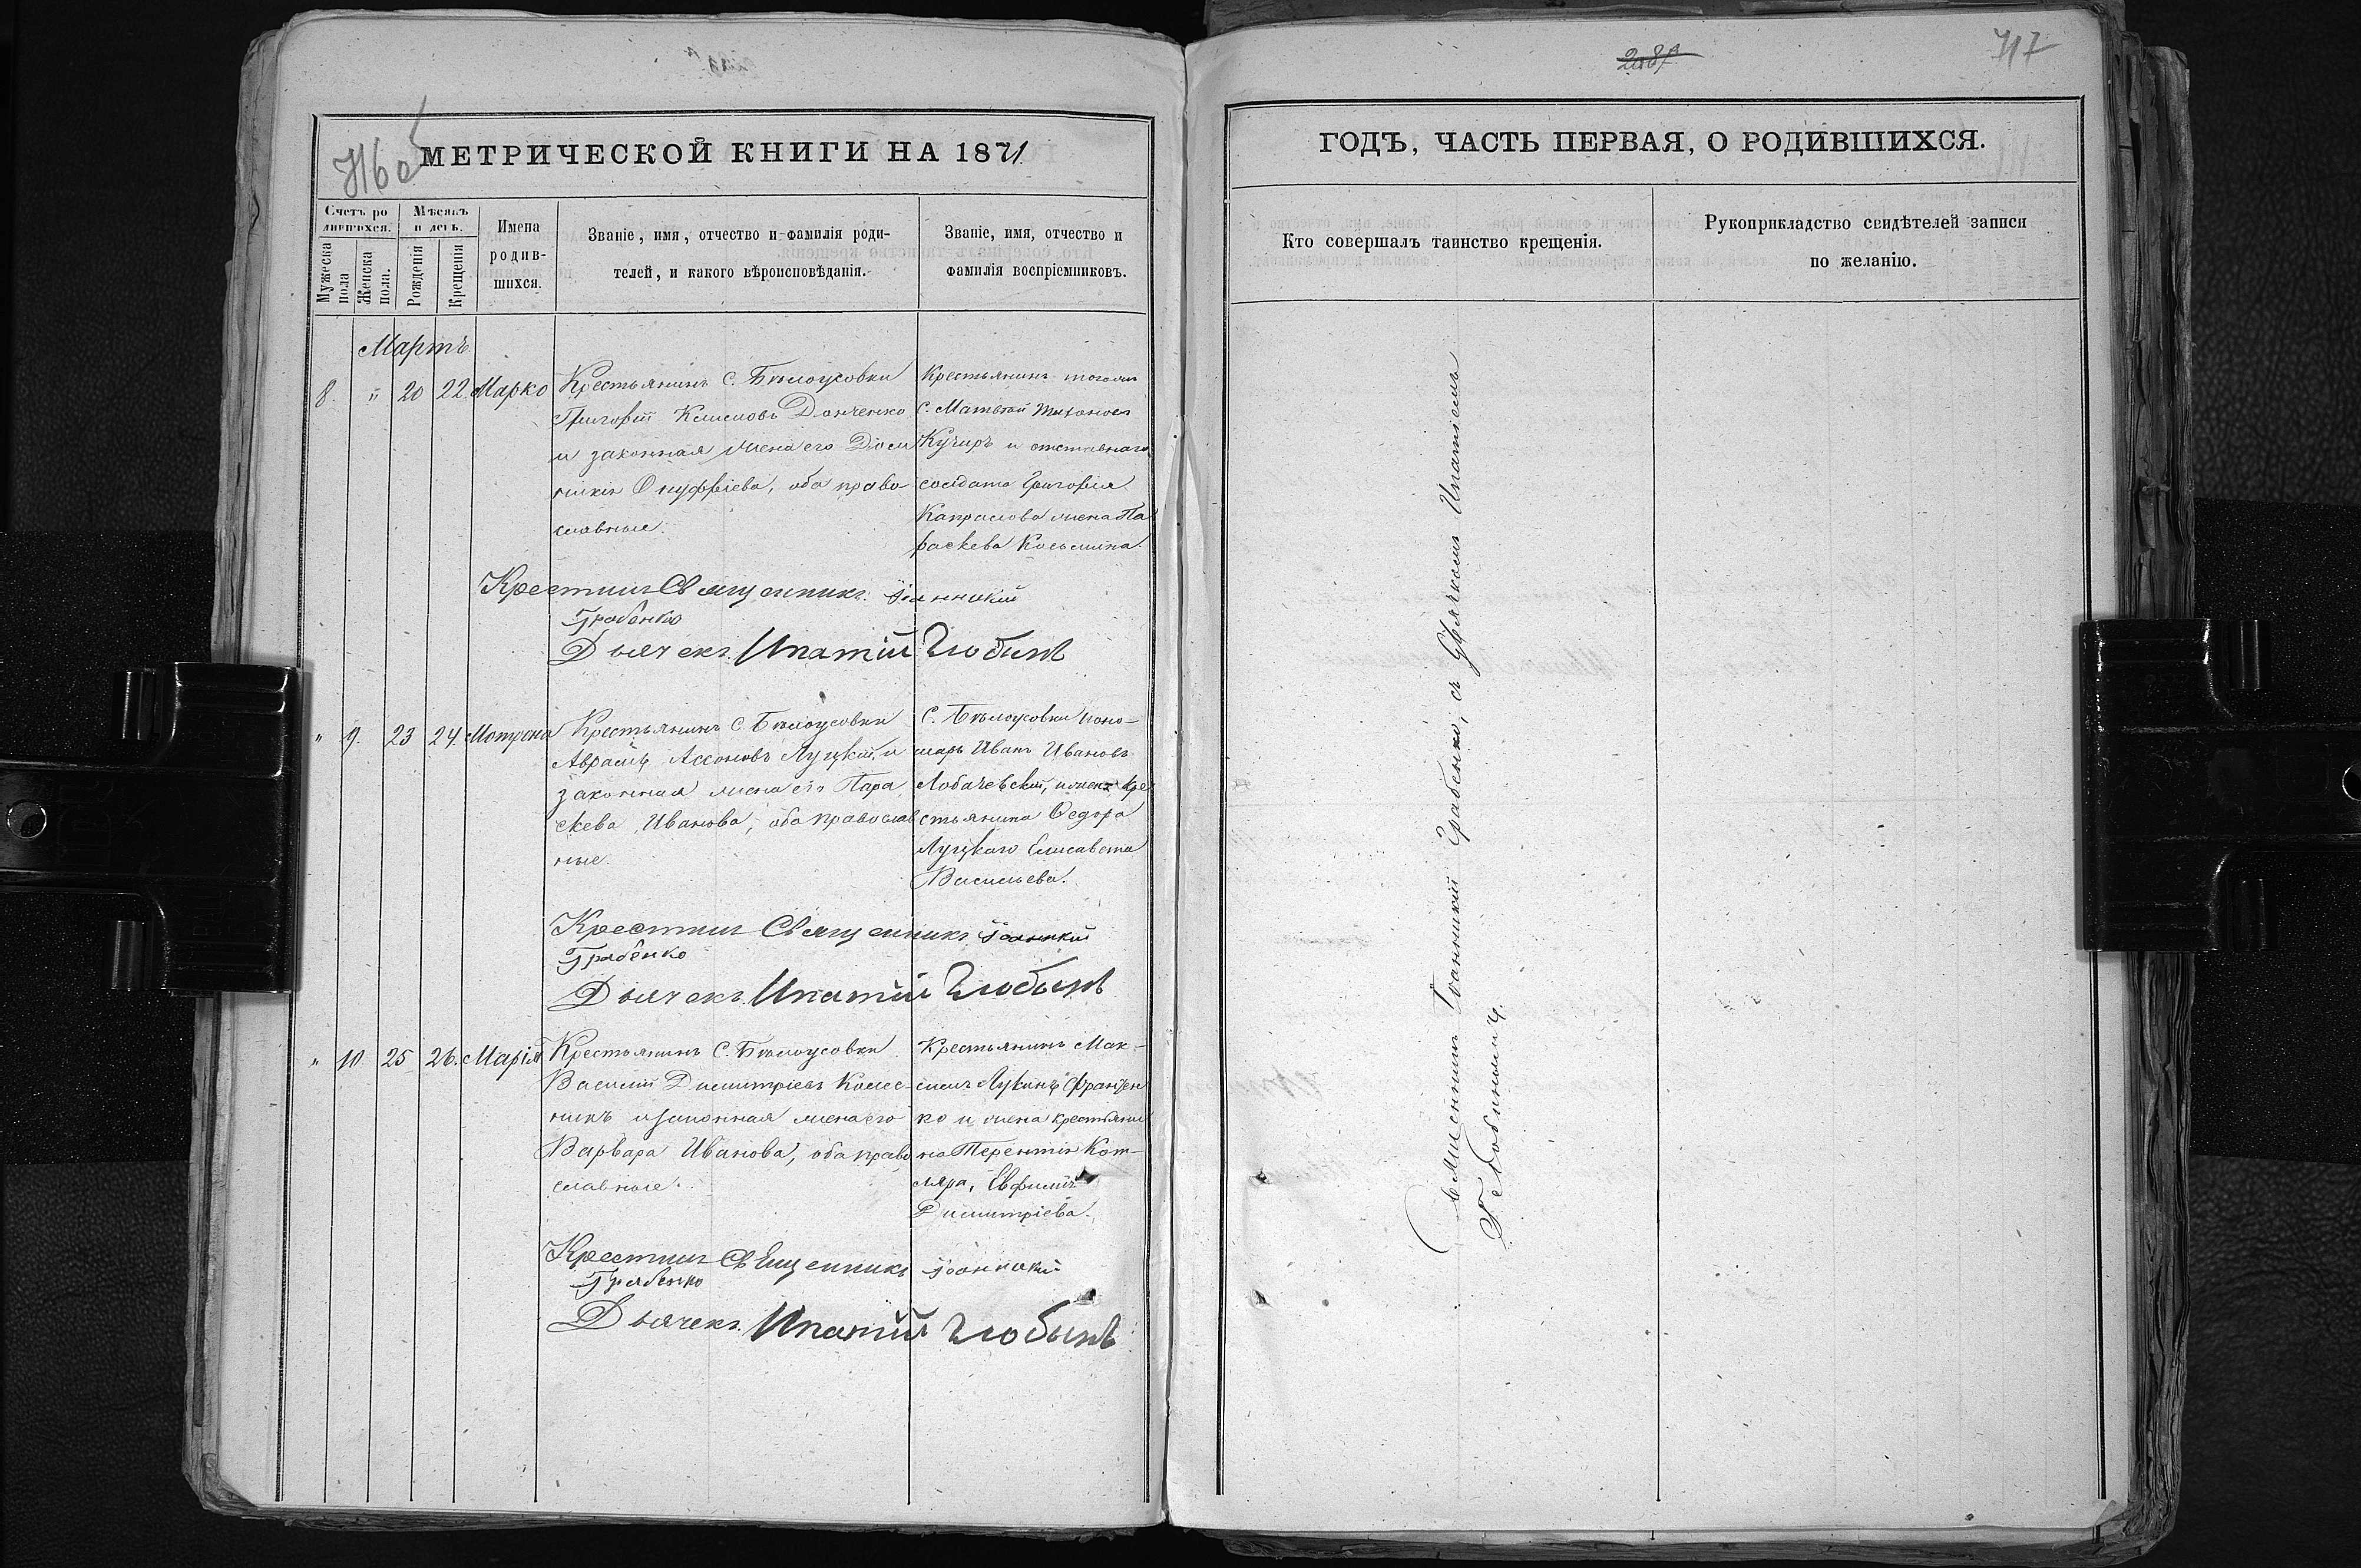 716 об
МЕТРИЧЕСКОЙ КНИГИ НА 1871
Счетъ ро
дившихся.
Мѣсяцъ
и день.
Имена
родив-
шихся.
Званіе, имя, отчество и фамилія роди-
телей, и какого вѣроисповѣданія.
Званіе, имя, отчество и
фамилія воспріемниковъ.
Мужеска
пола
Женска
пола.
Рожденія
Крещенія
Мартъ
8. " 20 22. Марко
Крестьянинъ С. Бѣлоусовки
Григорій Климовъ Донченко
и законная жена его Дом
никія Онуфріева, оба право
славные.
Крестьянинъ тогожъ
С. Матѳей Тихоновъ
Кучиръ и отставнаго
солдата Григорія
Капралова жена Па
раскева Косьмина.
Крестилъ Священникъ Іоанникій
Грабенко
Дьячекъ Ипатій
" 9. 23 24. Мотрона
Крестьянинъ С. Бѣлоусовки
Аврамъ Луцкій, и
законная жена его Пара
скева Иванова, оба православ
ные.
С. Бѣлоусовки поно-
марь Иванъ Ивановъ
Лобачевскій, и жена кре
стьянина Ѳедора
Луцкаго Елисавета
Васильева.
Крестилъ Священникъ Іоанникій
Грабенко
Дьячекъ Ипатій
" 10 25 26. Марія
Крестьянинъ С. Бѣлоусовки
Василій Димитріевъ Колес-
никъ и законная жена его
Варвара Иванова, оба право
славные.
Крестьянинъ Мак-
симъ Лукинъ
ко и жена крестьяни
на Терентія Кот-
ляра, Евфимія
Димитріева.
Крестилъ Священникъ Іоанникій
Грабенко
Дьячекъ Ипатій
208
717
ГОДЪ, ЧАСТЬ ПЕРВАЯ, О РОДИВШИХСЯ.
Кто совершалъ таинство крещенія.
Рукоприкладство свидѣтелей записи
по желанію.
Священникъ Іоанникій Грабенко, съ дьячкомъ Ипатіемъ